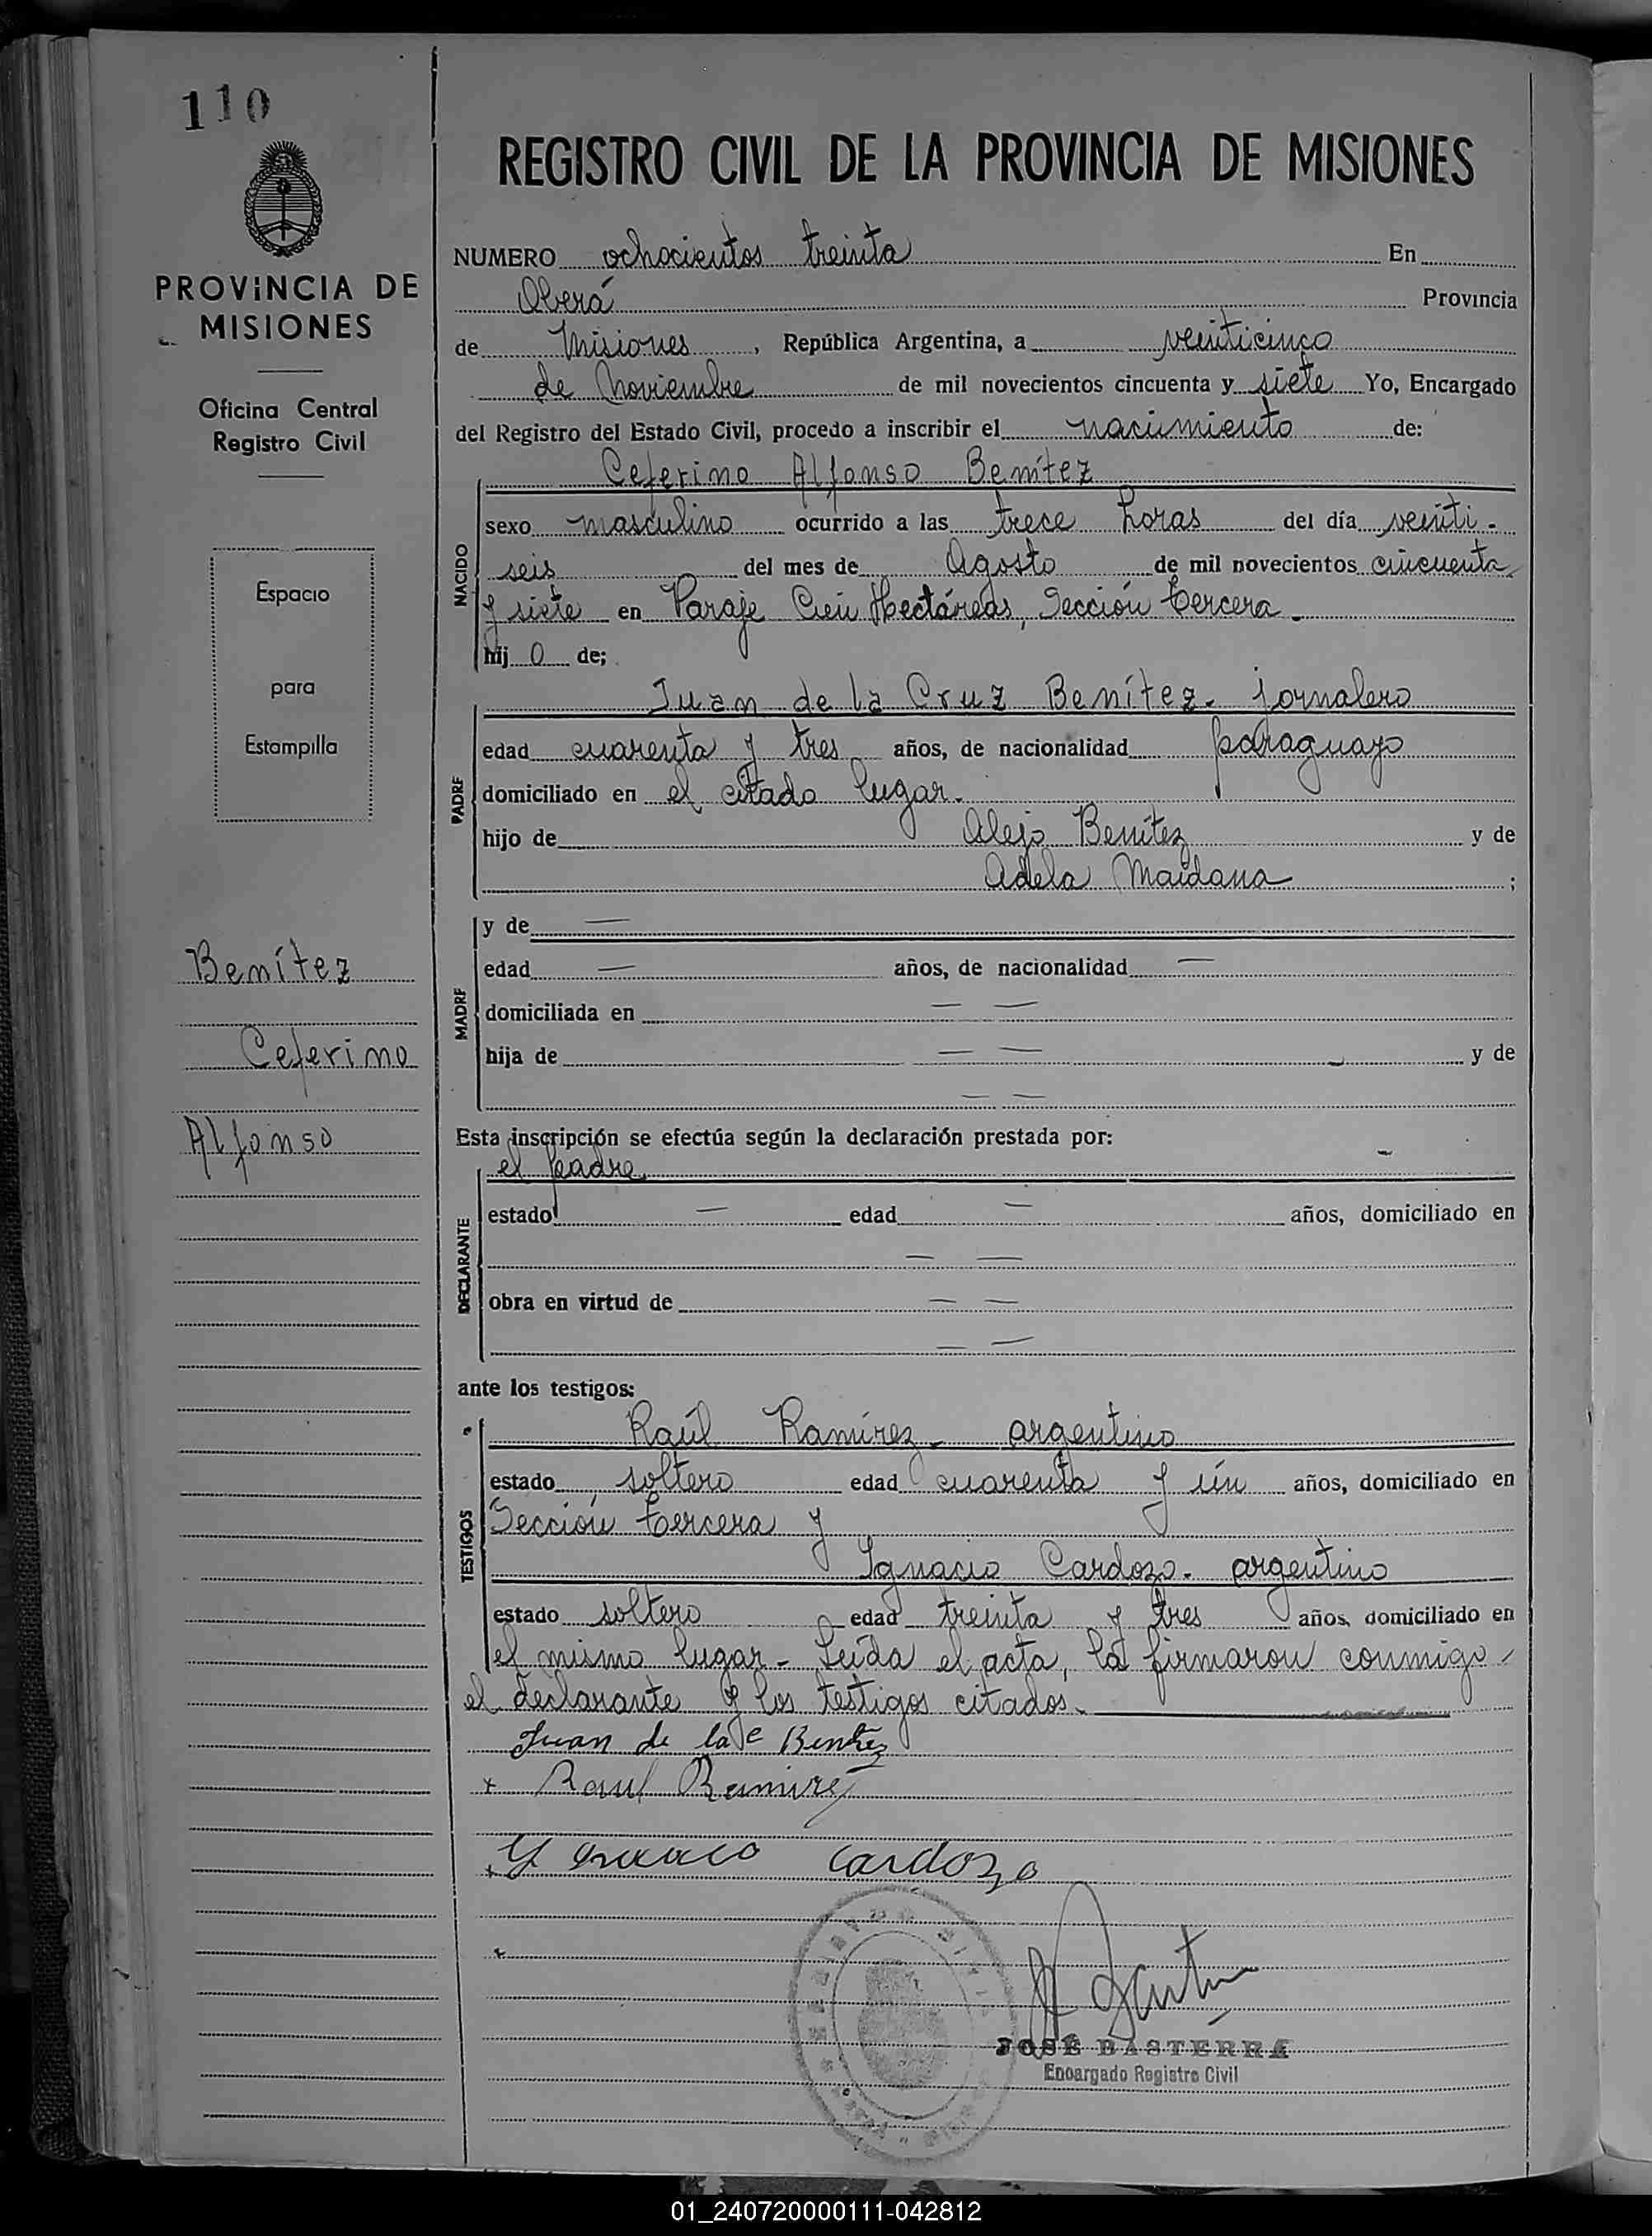 110
PROVINCIA DE
MISIONES
Oficina Central
Registro Civil
Espacio
para
Estampilla
Benítez
Ceferino
Alfonso
REGISTRO CIVIL DE LA PROVINCIA DE MISIONES
NUMERO ochocientos treinta En
Oberá Provincia
de Misiones, República Argentina, a veinticinco
de Noviembre de mil novecientos cincuenta y siete Yo, Encargado
del Registro del Estado Civil, procedo a inscribir el nacimiento de:
Ceferino Alfonso Benítez
NACIDO
sexo masculino ocurrido a las trece horas del día veinti-
seis del mes de Agosto de mil novecientos cincuenta
y siete en Paraje Cien Hectáreas, Sección tercera.
hij o de;
Juan de la Cruz Benítez. jornalero
PADRE
edad cuarenta y tres años, de nacionalidad paraguayo
domiciliado en el citado lugar.
hijo de Alejo Benítez y de
Adela Maidana ;
MADRE
y de —
edad — años, de nacionalidad —
domiciliada en — —
hija de — — y de
— —
Esta inscripción se efectúa según la declaración prestada por:
el padre
DECLARANTE
estado — edad — años, domiciliado en
— —
obra en virtud de — —
— —
ante los testigos:
Raúl Ramírez - argentino
TESTIGOS
estado soltero edad cuarenta y ún años, domiciliado en
Sección tercera y
Ignacio Cardozo. argentino
estado soltero edad treinta y tres años, domiciliado en
el mismo lugar - Leída el acta, la firmaron conmigo
el declarante y los testigos citados.
Juan de la C Benítez
x Raul Ramirez
Ygnacio Cardozo
JOSÉ BASTERRA
Encargado Registro Civil
01_240720000111-042812